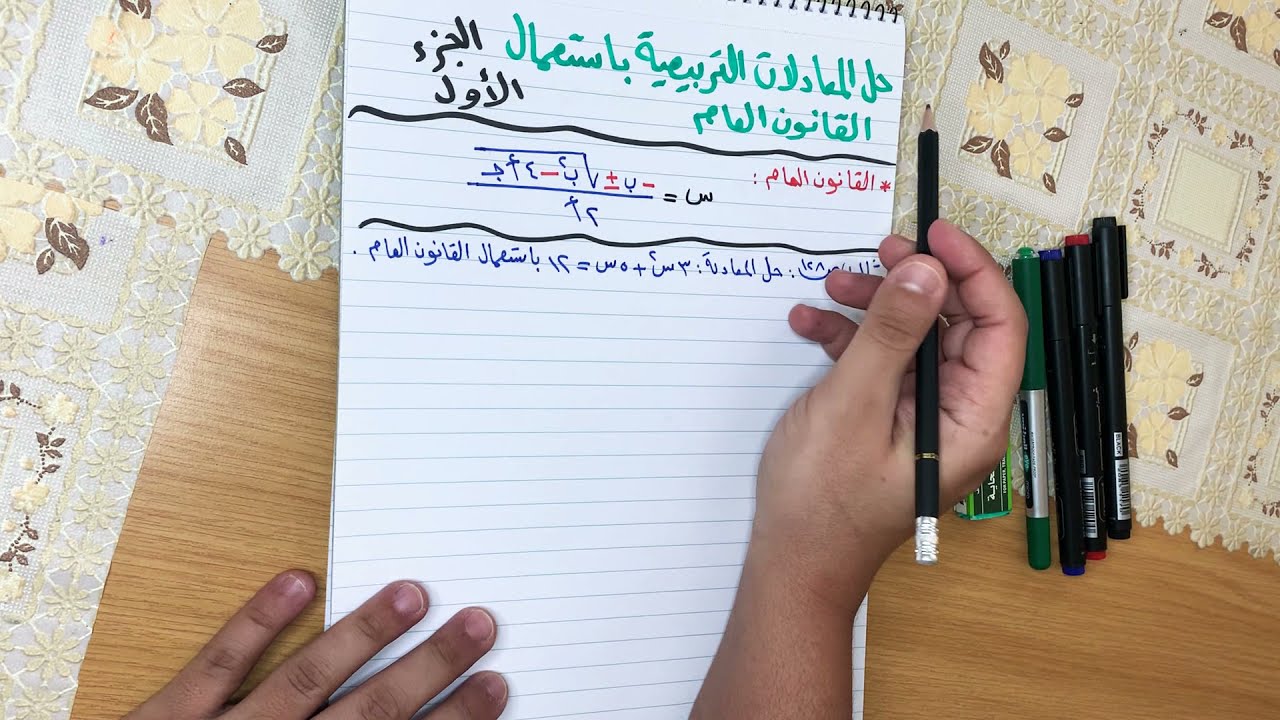 حل المعادلات التربيعية باستعمال
القانون العام
الجزء
الأول
* القانون العام :
س = - ب ± √ب٢ - ٤ أ جـ
٢ أ
حل المعادلة : ٣س٢ + ٥س = ١٢ باستعمال القانون العام .